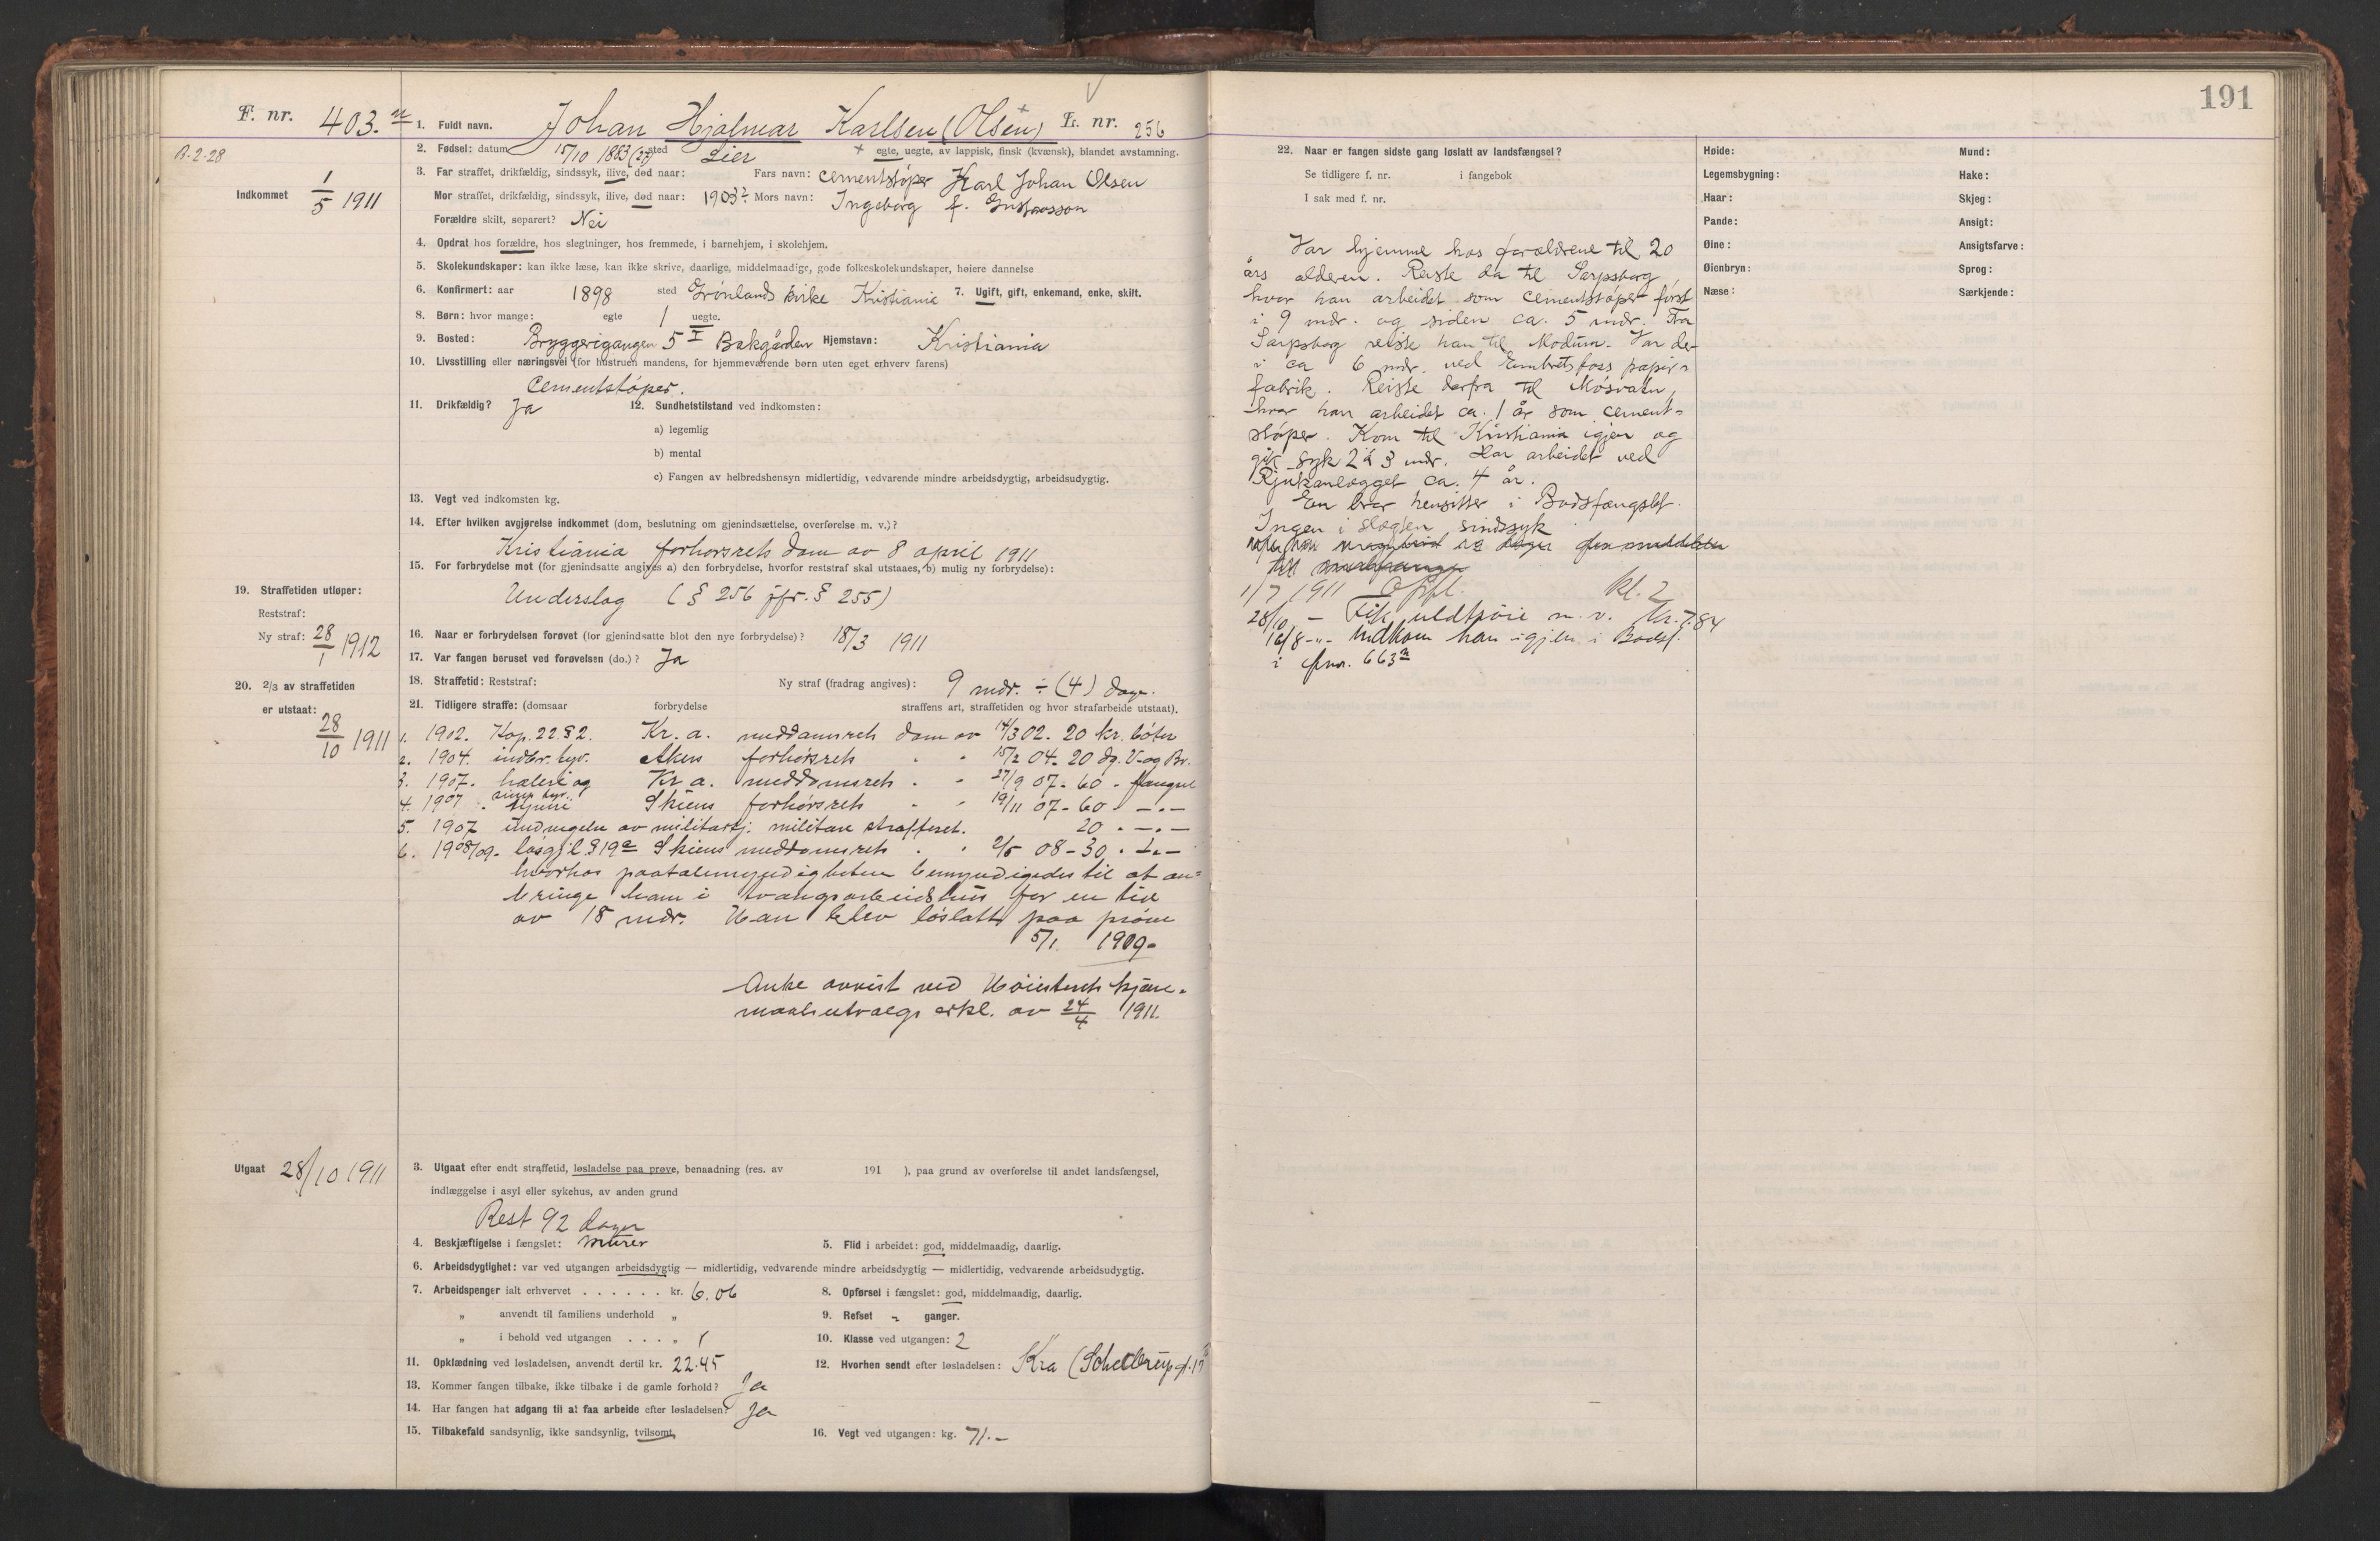 F. nr. 403.n
B-2-28
Indkommet 1/5 1911
1. Fuldt navn. Johan Hjalmar Karlsen (Olsen) L. nr. 256
2. Fødsel: datum 15/10 1883 (27) sted Lier + egte, uegte, av lappisk, finsk (kvænsk), blandet avstamning.
3. Far straffet, drikfældig, sindssyk, ilive, død naar: Fars navn: Cementstøper Karl Johan Olsen
Mor straffet, drikfældig, sindssyk, ilive, død naar: 1903? Mors navn: Ingeborg f. Gustavsson
Forældre skilt, separert? Nei
4. Opdrat hos forældre, hos slegtninger, hos fremmede, i barnehjem, i skolehjem.
5. Skolekundskaper: kan ikke læse, kan ikke skrive, daarlige, middelmaadige, gode folkeskolekundskaper, høiere dannelse
6. Konfirmert: aar 1898 sted Grønlands kirke Kristiania 7. Ugift, gift, enkemand, enke, skilt.
8. Børn: hvor mange: egte 1 uegte.
9. Bosted: Bryggerigangen 5 I Bakgården Hjemstavn: Kristiania
10. Livsstilling eller næringsvei (for hustruen mandens, for hjemmeværende børn uten eget erhverv farens)
Cementstøper.
11. Drikfældig? Ja 12. Sundhetstilstand ved indkomsten:
a) legemlig
b) mental
c) Fangen av helbredshensyn midlertidig, vedvarende mindre arbeidsdygtig, arbeidsudygtig.
13. Vegt ved indkomsten kg.
14. Efter hvilken avgjørelse indkommet (dom, beslutning om gjenindsættelse, overførelse m. v.)?
Kristiania forhørsrets dom av 8 april 1911
15. For forbrydelse mot (for gjenindsatte angives a) den forbrydelse, hvorfor reststraf skal utstaaes, b) mulig ny forbrydelse):
Underslag (§ 256 jfr. § 255)
19. Straffetiden utløper:
Reststraf:
Ny straf: 28/1 1912
16. Naar er forbrydelsen forøvet (for gjenindsatte blot den nye forbrydelse)? 18/3 1911
17. Var fangen beruset ved forøvelsen (do.)? Ja
18. Straffetid: Reststraf: Ny straf (fradrag angives): 9 mdr. ÷ (4) dage.
20. 2/3 av straffetiden
er utstaat:
28/10 1911
21. Tidligere straffe: (domsaar forbrydelse straffens art, straffetiden og hvor strafarbeide utstaat).
1. 1902. Kap. 22 § 2. Kr.a. meddomsrets dom av 14/3 02. 20 kr. bøter
2. 1904. indbr. tyv. Akers forhørsrets " " 15/2 04. 20 dg. V. og Br.
3. 1907. heleri og Kr.a. meddomsrets " " 27/9 07 - 60 - fængsel
simp. tyv.
4. 1907 " Skiens forhørsrets " " 19/11 07 - 60 - " -
5. 1907 undvigelse av militærtj. militære straffered. 20 " - " -
6. 1908/09. løsgjl. § 19 a Skiens meddomsrets " " 2/5 08 - 30 " - " -
hvorhos paatalemyndigheten bemyndigedes til at an-
bringe ham i tvangsarbeidshus for en tid
av 18 mdr. Han blev løslatt paa prøve
5/1. 1909.
Anke avvist ved Høiesterets kjære-
maalsutvalgs erkl. av 24/4 1911.
Utgaat 28/10 1911
3. Utgaat efter endt straffetid, løsladelse paa prøve, benaadning (res. av 191 ), paa grund av overførelse til andet landsfængsel,
indlæggelse i asyl eller sykehus, av anden grund
Rest 92 dager
4. Beskjæftigelse i fængslet: murer 5. Flid i arbeidet: god, middelmaadig, daarlig.
6. Arbeidsdygtighet: var ved utgangen arbeidsdygtig — midlertidig, vedvarende mindre arbeidsdygtig — midlertidig, vedvarende arbeidsudygtig.
7. Arbeidspenger ialt erhvervet . . . . . . kr. 6.06 8. Opførsel i fængslet: god, middelmaadig, daarlig.
„ anvendt til familiens underhold „ 9. Refset - ganger.
„ i behold ved utgangen . . . „ 10. Klasse ved utgangen: 2
11. Opklædning ved løsladelsen, anvendt dertil kr. 22.45 12. Hvorhen sendt efter løsladelsen: Kra (Schelderup
13. Kommer fangen tilbake, ikke tilbake i de gamle forhold? Ja
14. Har fangen hat adgang til at faa arbeide efter løsladelsen? Ja
15. Tilbakefald sandsynlig, ikke sandsynlig, tvilsomt 16. Vegt ved utgangen: kg. 71.-
191
22. Naar er fangen sidste gang løslatt av landsfængsel?
Se tidligere f. nr. i fangebok
I sak med f. nr.
Var hjemme hos forældrene til 20
års alderen. Reiste da til Sarpsborg
hvor han arbeidet som cementstøper først
i 9 mdr. og siden ca. 5 mdr. Fra
Sarpsborg reiste han til Modum. Var der
i ca 6 mdr. ved Embretsfoss papir-
fabrik. Reiste derfra til Møsvatn,
hvor han arbeidet ca. 1 år som cement-
støper. Kom til Kristiania igjen og
gik syk 2 à 3 mdr. Har arbeidet ved
Rjukanlægget ca. 4 år.
En bror hensitter i Bodsfængslet.
Ingen i slægten sindssyk
1/7 1911 Opfl. kl. 2
28/10 - Fik uldtrøie m. v. Kr. 7.84
16/8 - " - Indkom han igjen i Bodsf.
i fnr. 663 n
Høide:
Legemsbygning:
Haar:
Pande:
Øine:
Øienbryn:
Næse:
Mund:
Hake:
Skjeg:
Ansigt:
Ansigtsfarve:
Sprog:
Særkjende: